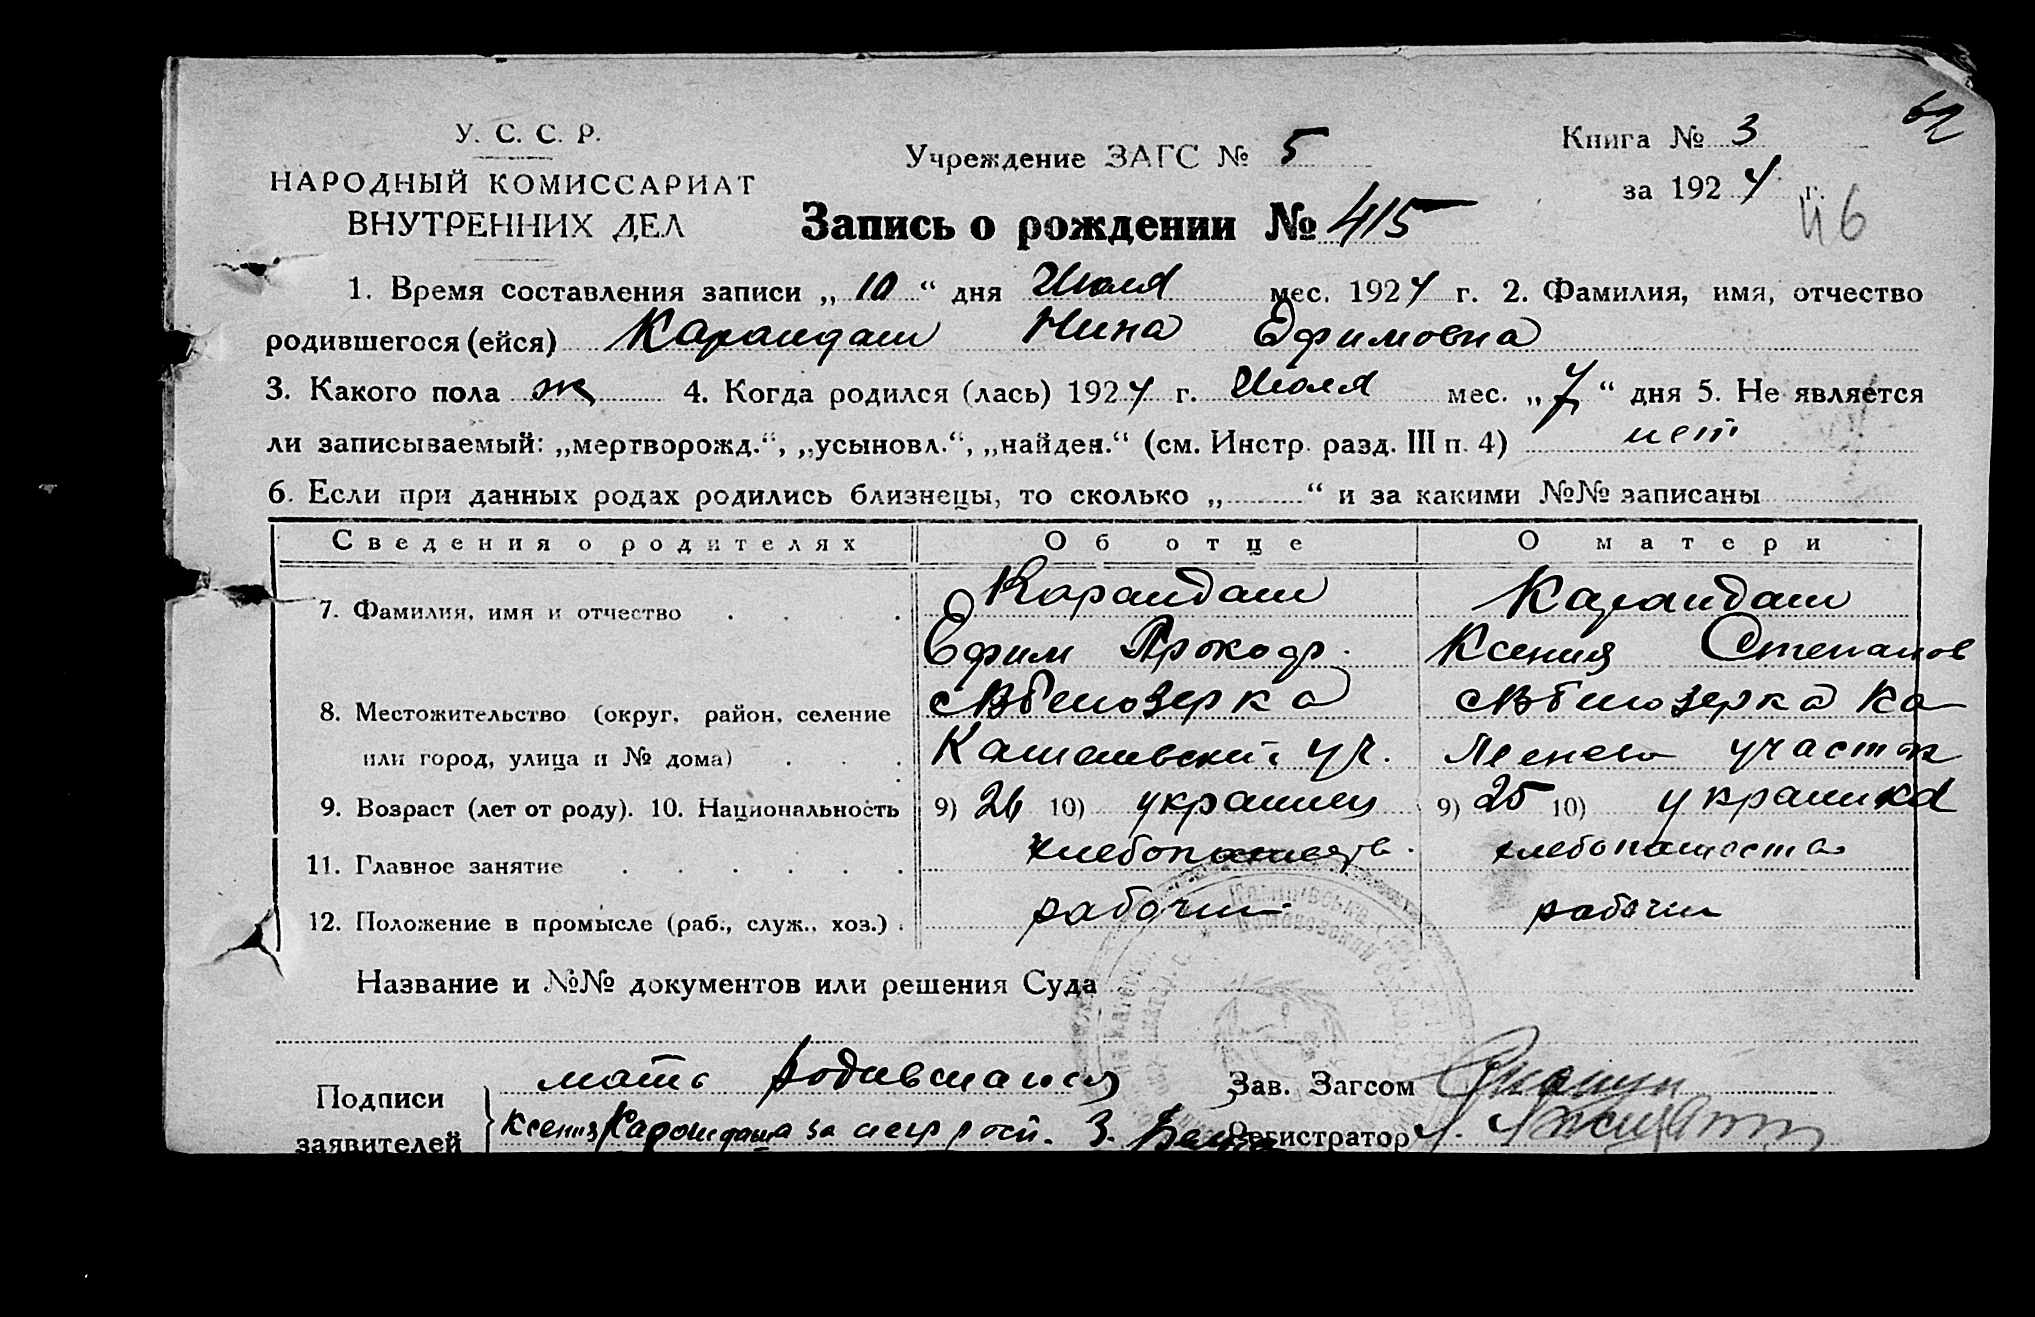 62
У. С. С. Р.
НАРОДНЫЙ КОМИССАРИАТ
ВНУТРЕННИХ ДЕЛ
Учреждение ЗАГС № 5
Книга № 3
за 1924 г.
46
Запись о рождении № 415
1. Время составления записи „ 10 “ дня Июля мес. 1924 г. 2. Фамилия, имя, отчество
родившегося (ейся) Карандаш Нина Ефимовна
3. Какого пола ж 4. Когда родился (лась) 1924 г. Июля мес. „ 7 “ дня 5. Не является
ли записываемый: „мертворожд.“, „усыновл.“, „найден.“ (см. Инстр. разд. III п. 4) нет
6. Если при данных родах родились близнецы, то сколько „ “ и за какими №№ записаны
Сведения о родителях Об отце О матери
7. Фамилия, имя и отчество Карандаш Карандаш
Ефим Прокоф. Ксения Степанов
8. Местожительство (округ, район, селение Белозерка Белозерка Ка
или город, улица и № дома) уч. участок
9. Возраст (лет от роду). 10. Национальность 9) 26 10) украинец 9) 25 10) украинка
11. Главное занятие хлебопашество
12. Положение в промысле (раб., служ., хоз.) рабочий рабочий
Название и №№ документов или решения Суда
Подписи мать Зав. Загсом
заявителей Ксения Карандаш за Регистратор